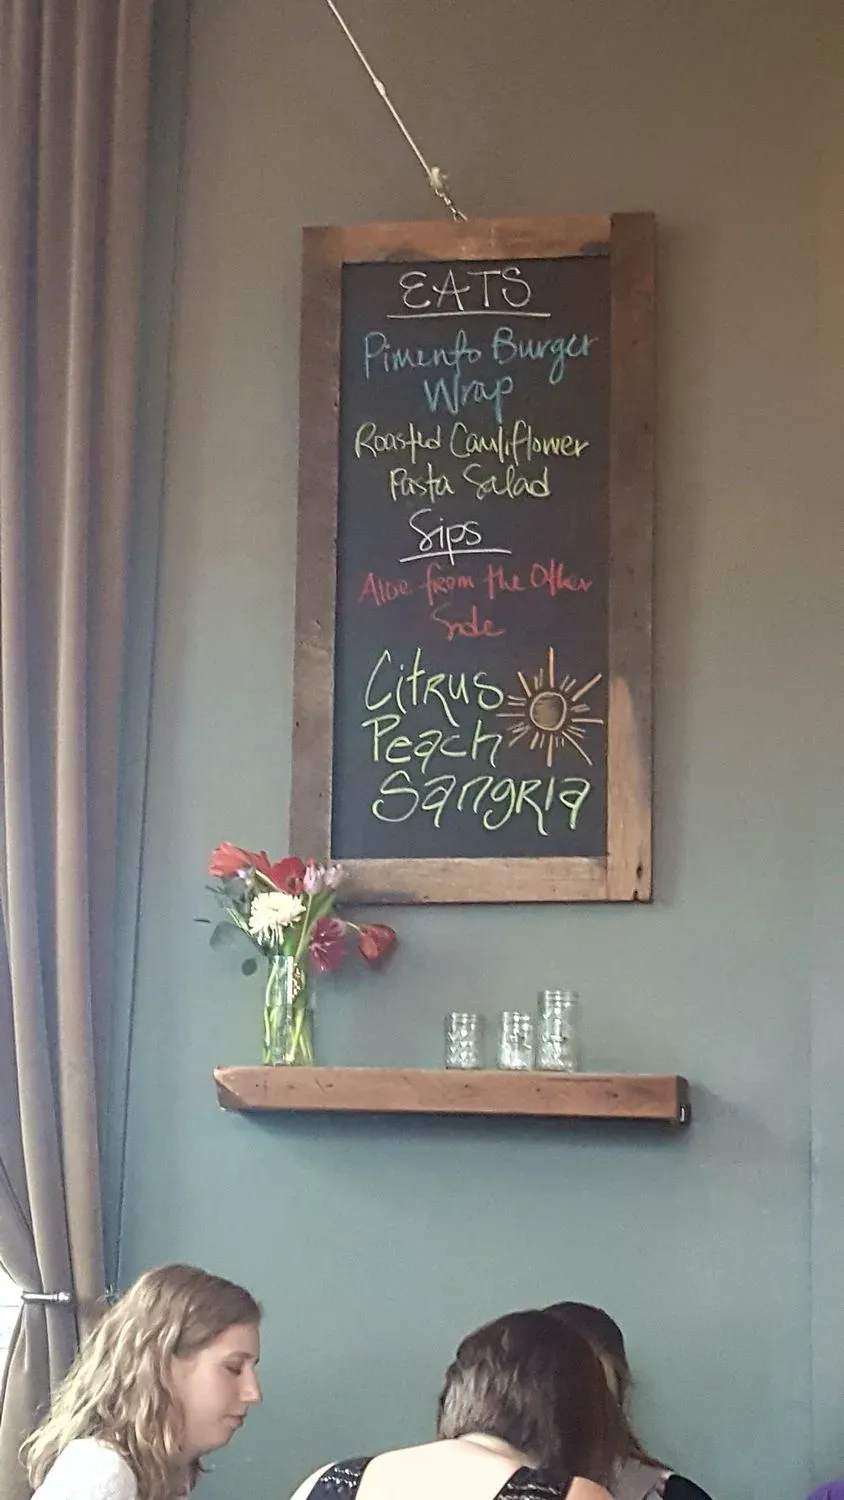 EATS
Pimento Burger
Wrap
Roasted Cauliflower
Pasta Salad
Sips
Aloe from the Other
Side
Citrus
Peach
Sangria